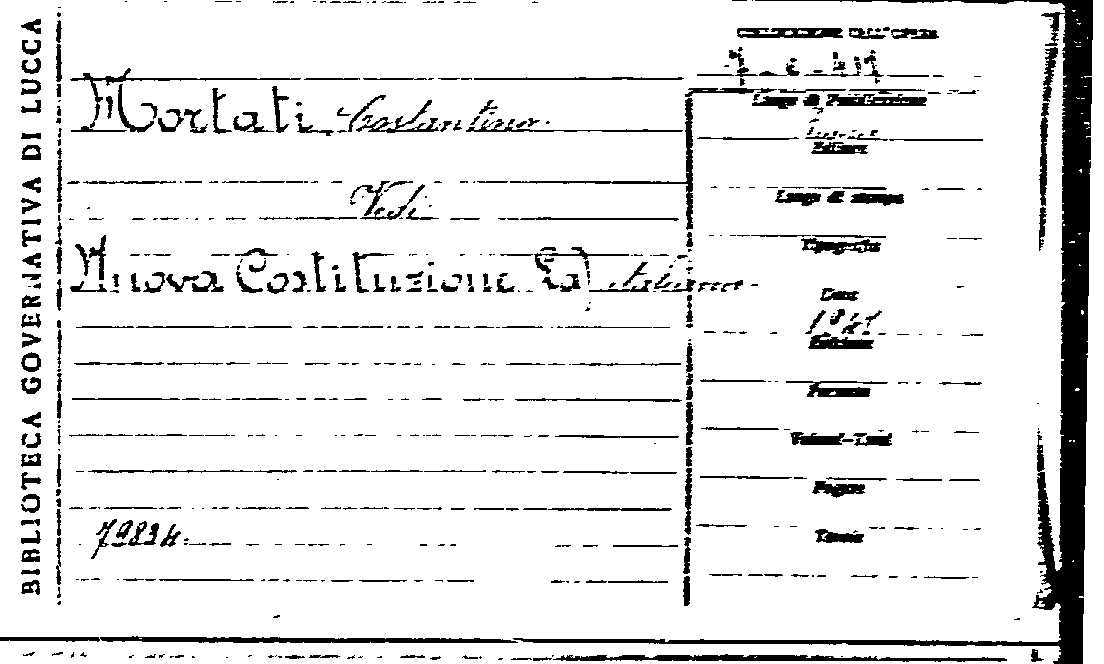 BIBLIOTECA GOVERNATIVA DI LUCCA
COLLOCAZIONE DELL'OPERA
Mortati Costantino.
Luogo di Pubblicazione
Editore
Vedi
Luogo di stampa
Nuova Costituzione (La) italiana
Tipografia
Data
Edizione
Formato
Volumi-Tomi
Pagine
79834
Tavole